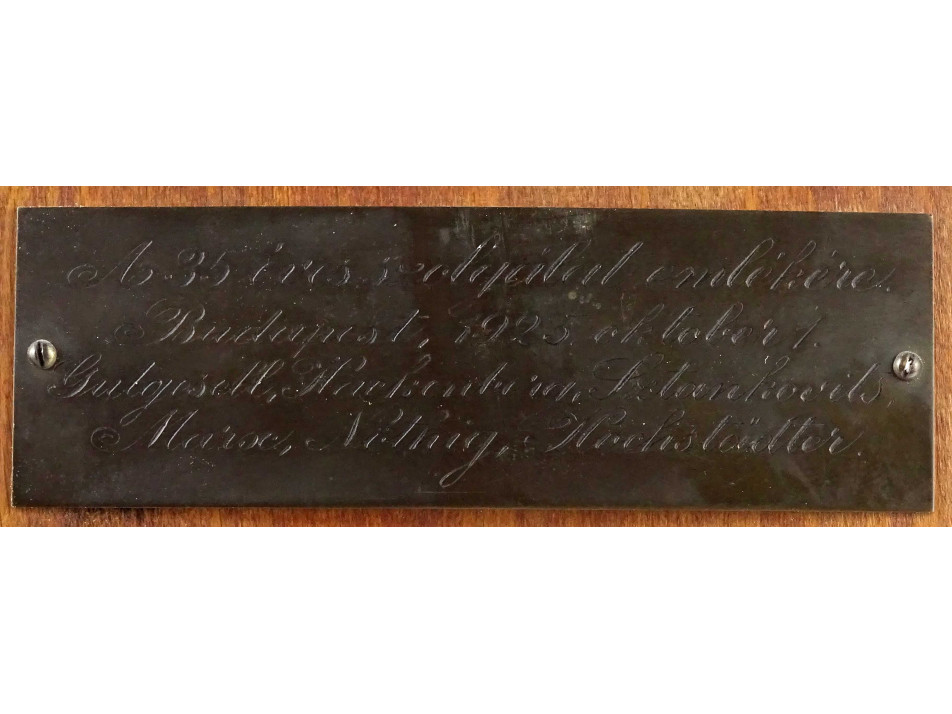 A 35 éves szolgálat emlékére.
Budapest, 1925 október 1.
Gutgesell, Hackenberg, Sztankovits,
Marx, Nöthig, Hochstädter.